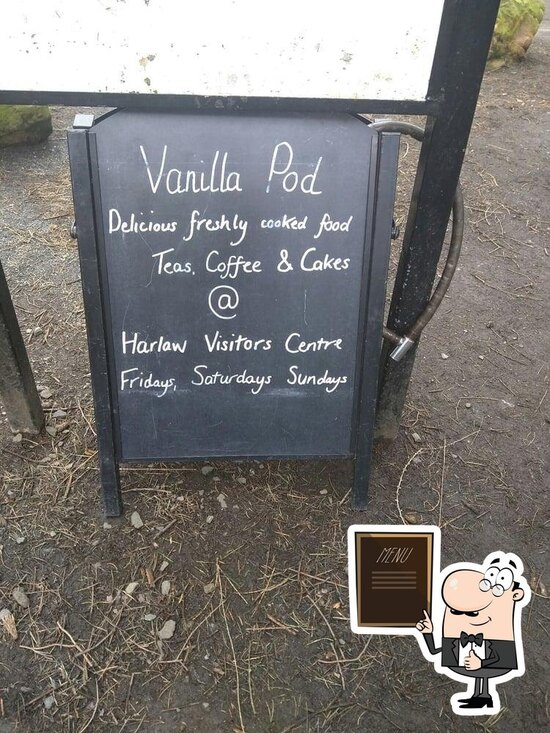 Vanilla Pod
Delicious freshly cooked food
Teas, Coffee & Cakes
@
Harlaw Visitors Centre
Fridays, Saturdays Sundays
MENU